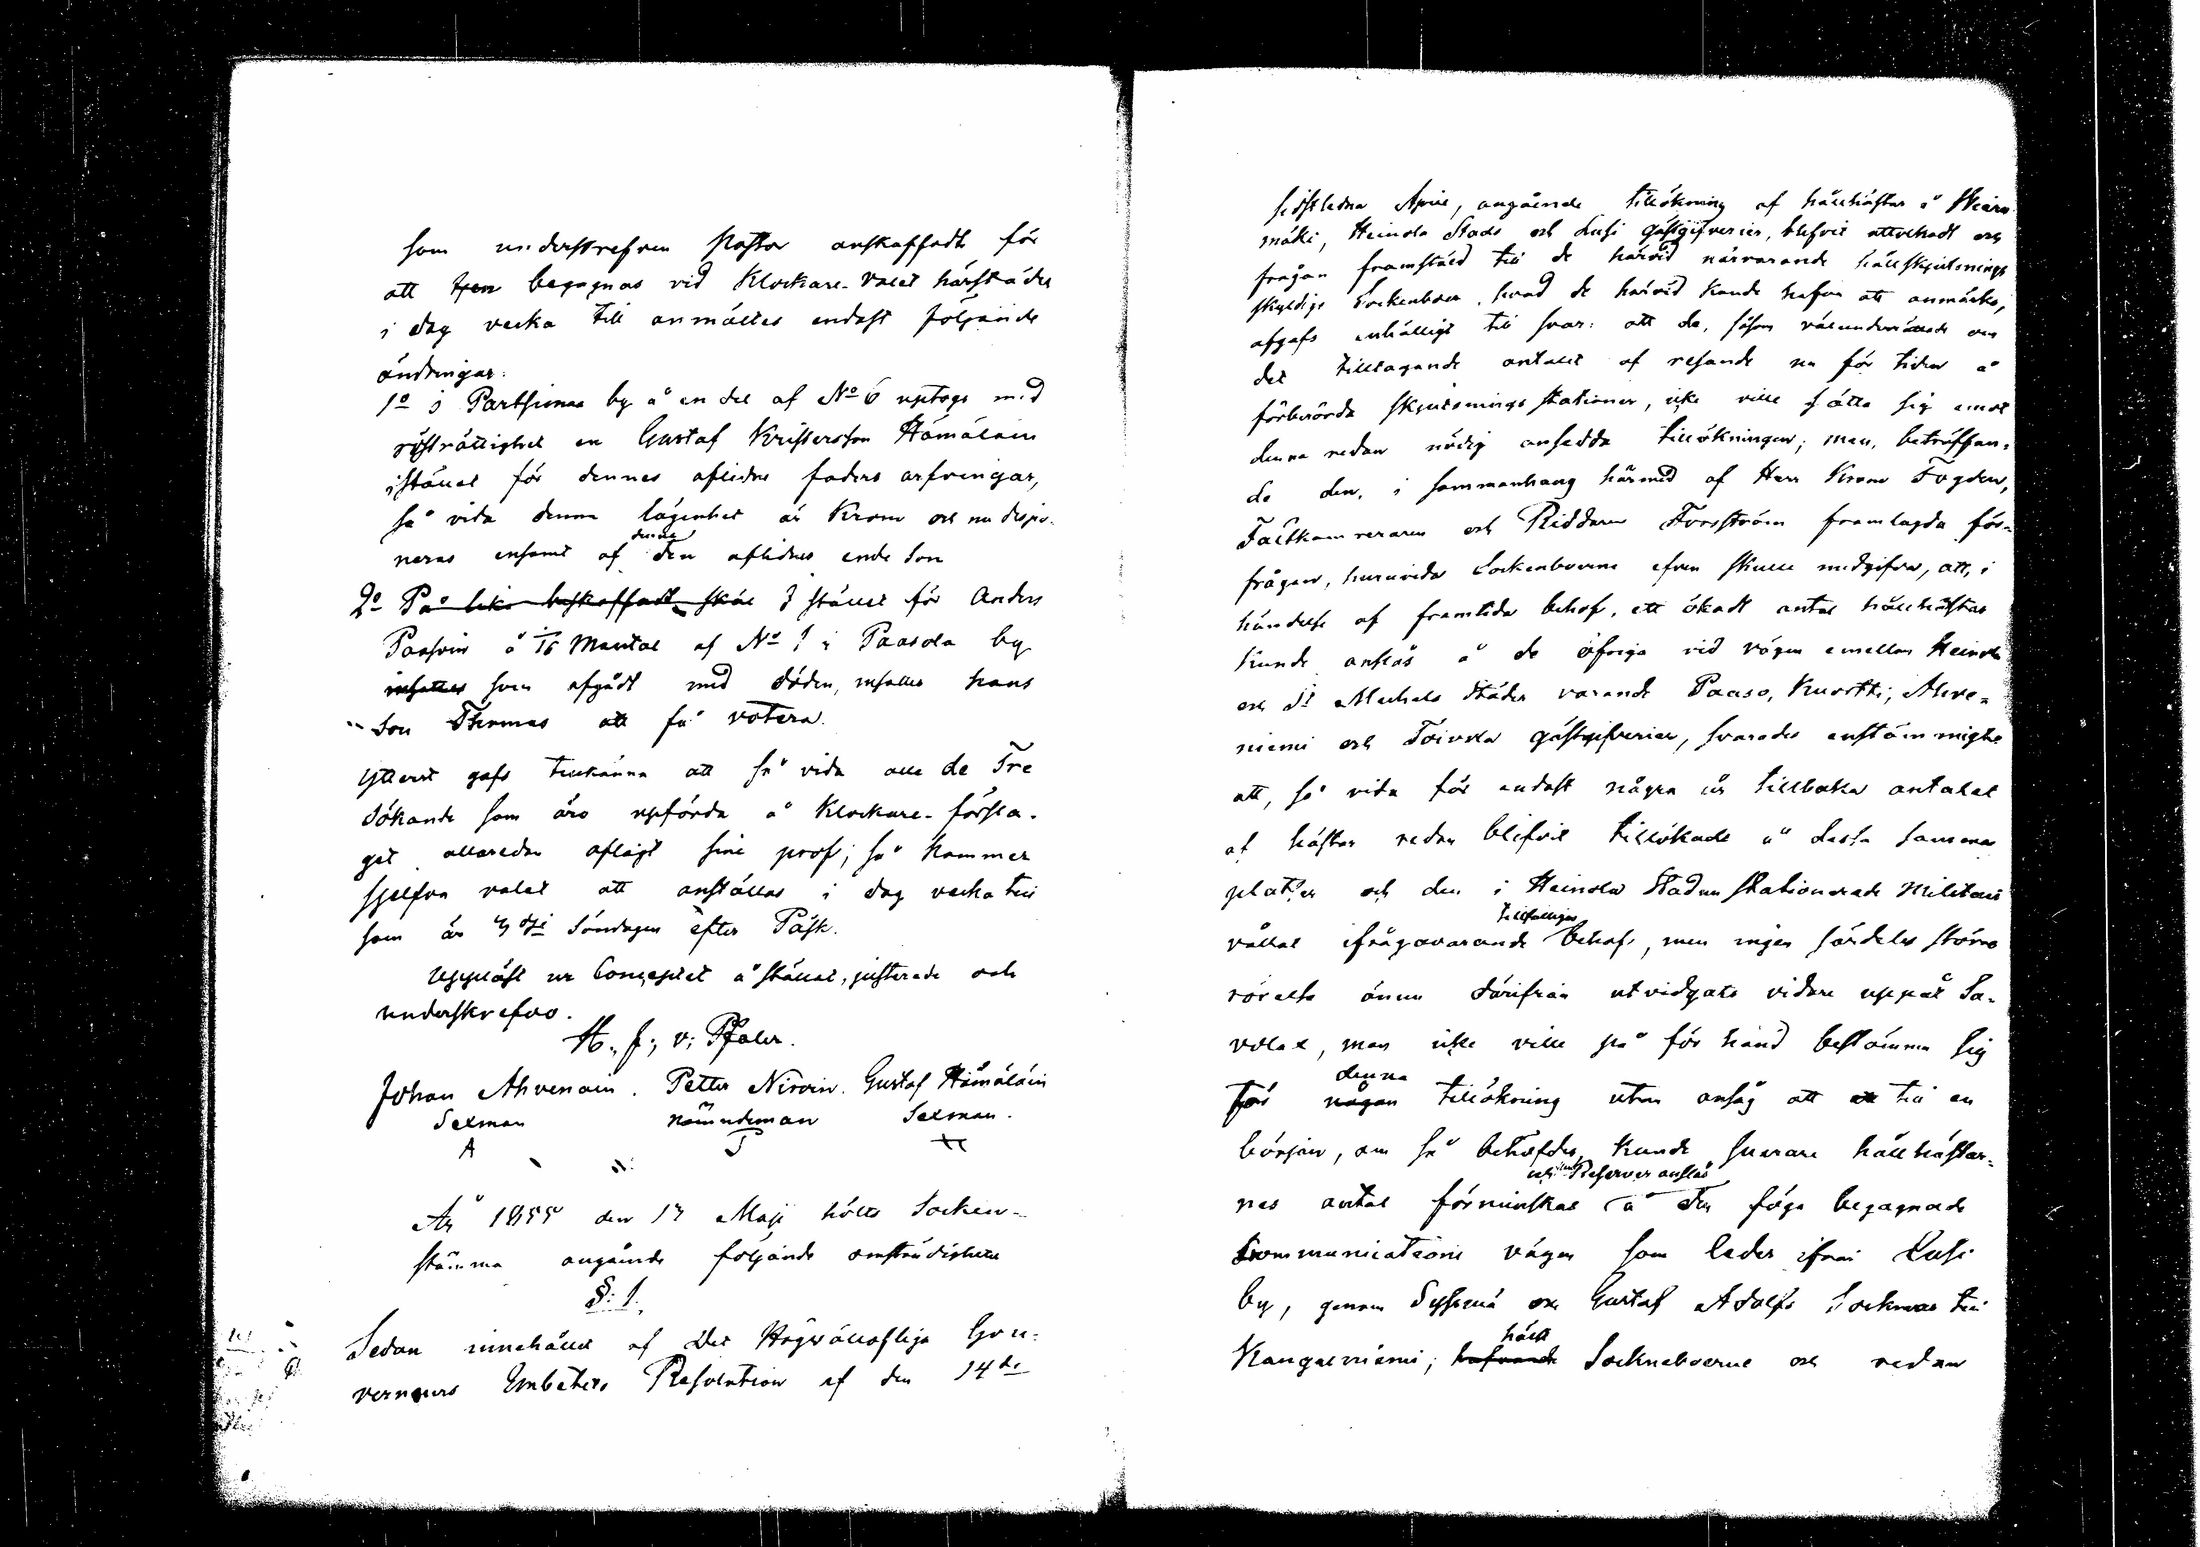 som underskrefven Pastor anskaffadt för
att begagnas vid Klockare-valet härstädes
i dag vecka till anmältes endast följande
ändringar:
1o i Partsimaa by å en del af No 6 uptogs med
rösträttighet en Gustaf Kristersson Hämäläin
istället för dennes aflidne faders arfvingar,
så vida denna lägenhet är Krono och nu dispo-
neras ensamt af denne den aflidnes ende Son
2o På lika beskaffadt skäl I stället för Anders
Paasoin å 1/16 Mantal af No 1 i Paasola by
insattes som afgådt med döden, insattes hans
Son Thomas att få votera.
Ytterst gafs tillkänna att så vida alla de Tre
Sökande som äro uppförda å Klockare-försla-
get allaredan aflagt sine prof; så kommer
sjelfva valet att anställas i dag vecka till
som är 4de Söndagen efter Påsk.
Uppläst ur Conceptet å stället, justerade och
underskrefvo.
H. J. v. Pfaler.
Johan Ahvenain. Petter Niroin. Gustaf Hämäläin
Sexman nämndeman Sexman.
År 1855 den 13 Maji hölts Socken-
stämma angående följande omständigheter
§: 1.
Sedan innehållet af Det Högvällofliga Gou-
verneurs Embetets Resolution af den 14de
sistledne April, angående tillökning af hållhästar å Skiärn
mäki, Heinola Stads och Lusi gästgifverier, blifvit uttolkadt och
frågan framstäld till de härvid närvarande hållskjutsnings
skyldige Sockenboer, hvad de härvid kunde hafva att anmärka,
afgafs enhälligt till svar: att de, såsom välunderrättade om
det tilltagande antalet af resande nu för tiden å
förberörda skjutsnings stationer, icke ville sätta sig emot
denna redan nödig ansedda tillökningen; men, beträffan-
de den, i sammanhang härmed af Herr Krono Fogden,
Fältkamreraren och Riddaren Forsström framlagda för-
frågan, huruvida Sockenboerne efven skulle medgifva, att, i
händelse af framtida behof, ett ökadt antal hållhästar
kunde anslås å de öfriga vid vägen emellan Heinola
och St Michels Städer varande Paaso, Kuortti,
niemi och Toivola gästgifverier, svarades enstämmigt
att, så vida för endast några år tillbaka antalet
af hästar redan blifvit tillökade å dessa samma
platser och den i Heinola Stad nu stationerade Militair
vållat ifrågavarande tillfälliga behof, men ingen särdeles större
rörelse ännu därifrån utvidgats vidare uppåt Sa-
volax, man icke ville på för hand bestämma sig
för någon denna tillökning utan ansåg att till en
början, om så behöfdes, kunde snarare hållhästar-
nes antal förminskas å den föga begagnade
Communications vägen som leder ifrån Lusi
by, genom Sysmä och Gustaf Adolfs Socknar till
Kangasniemi; hafvande Sockneboerne och redan